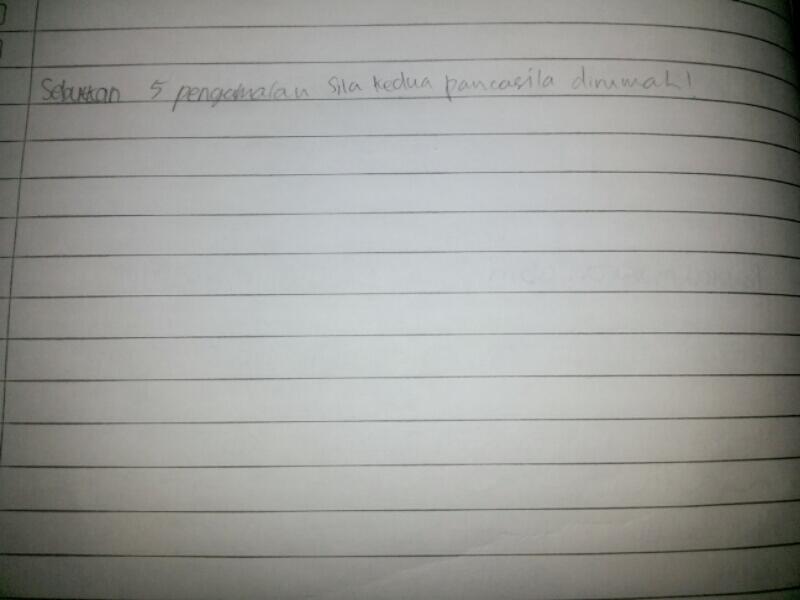 Sebutkan 5 pengamalan Sila kedua pancasila dirumah!